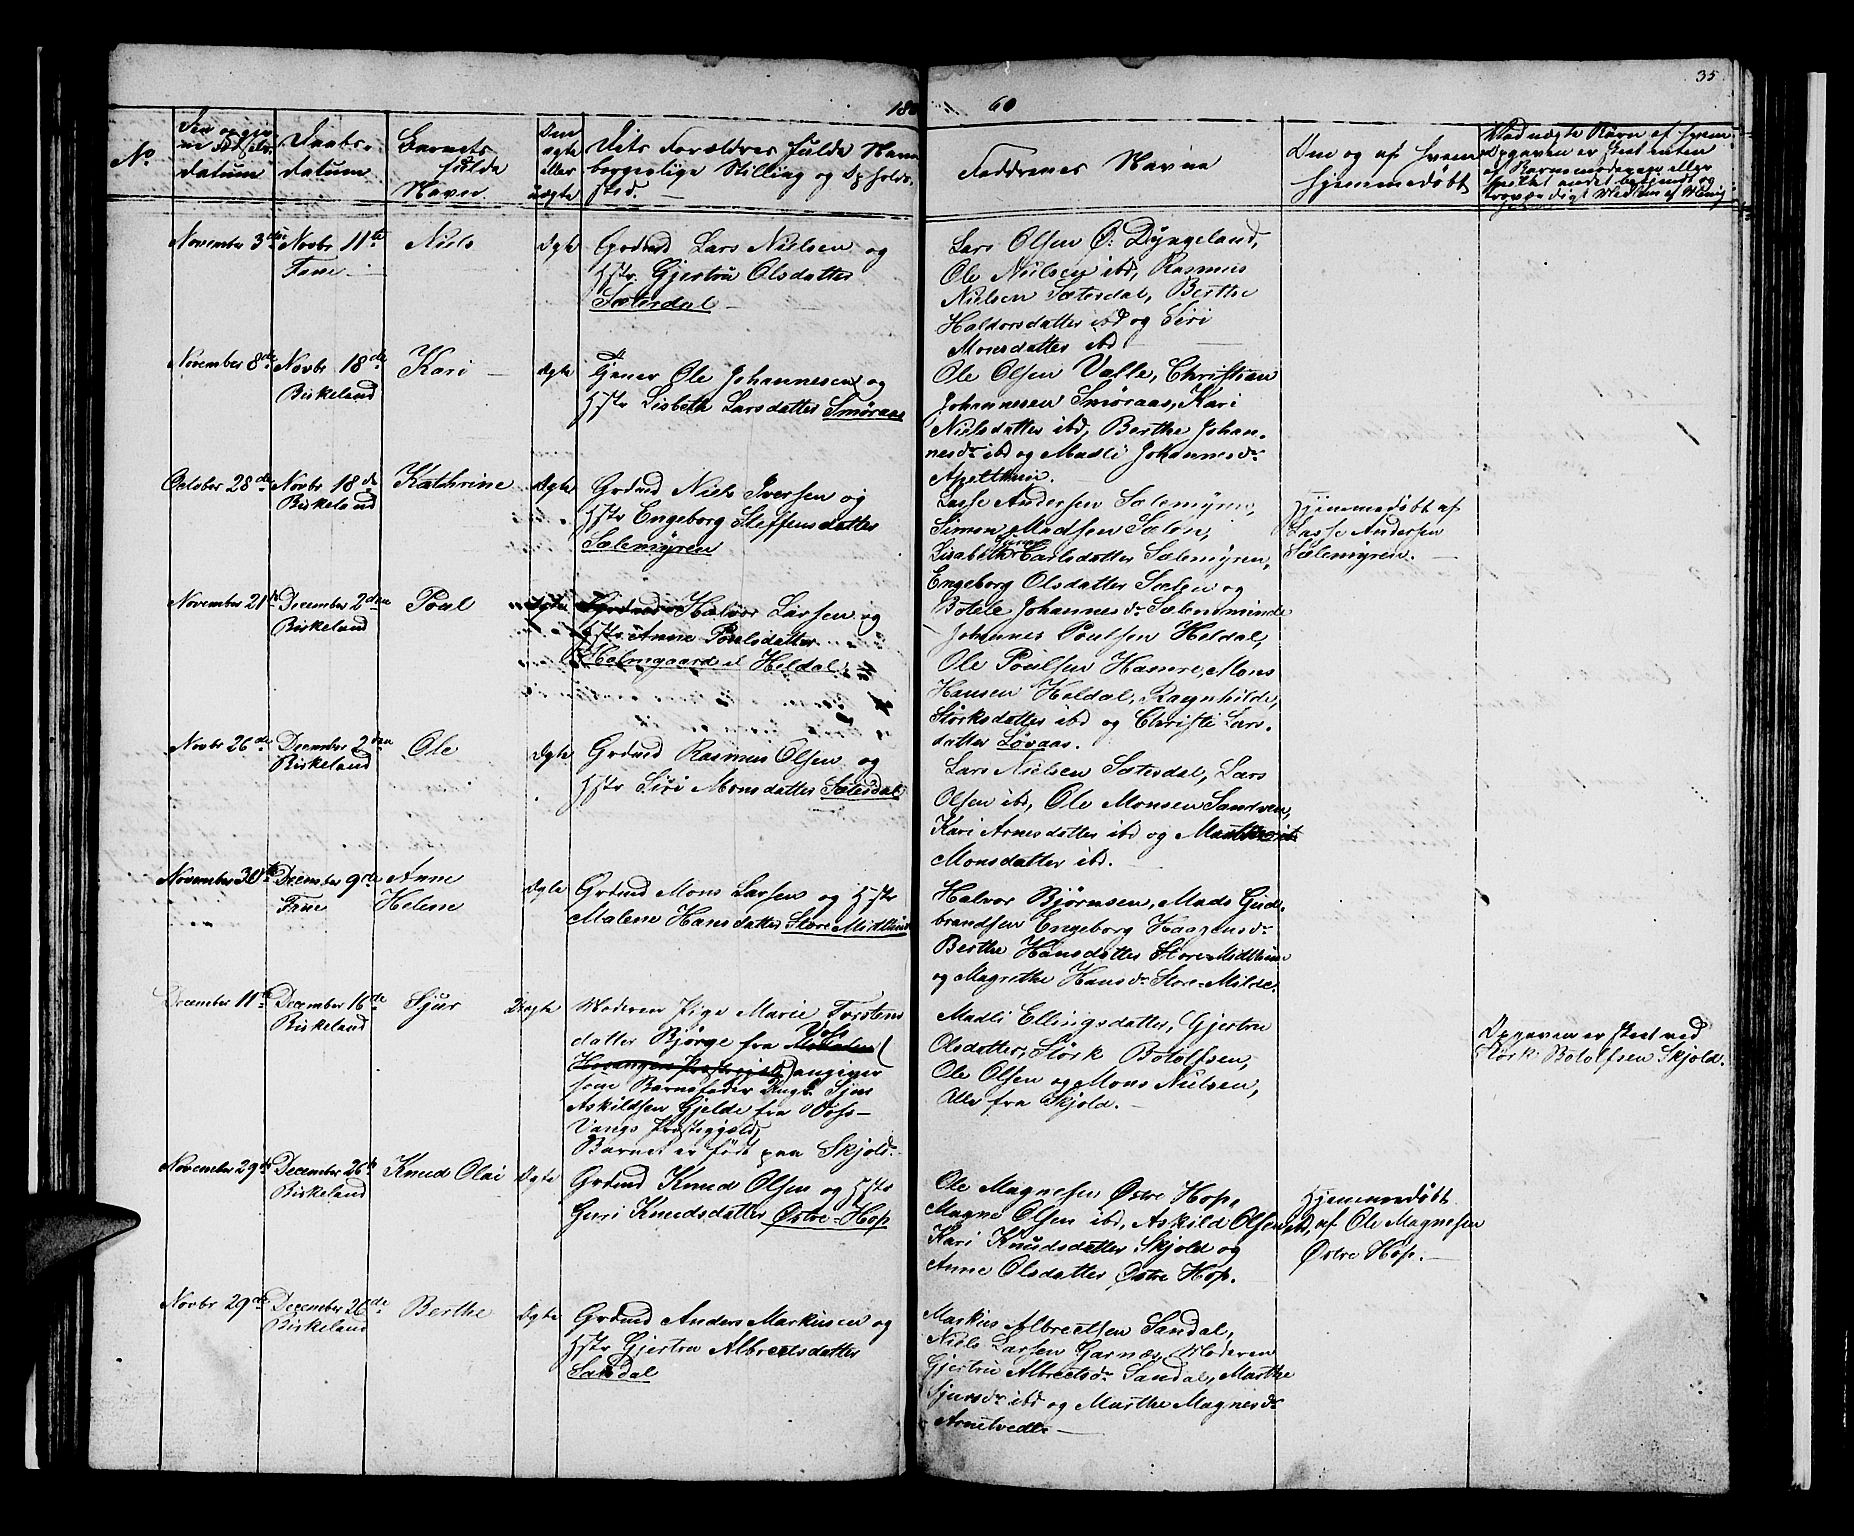 35
18 60
No
Den opgivne Fødsels datum
Daabs datum
Barnets fulde Navn
Om ægte eller uægte
Dets Forældres fulde Navn borgerlige Stilling og Opholdssted.
Faddernes Navne
Om og af hvem hjemmedøbt
November 3die
Novbr 11te
Fane
Niels
Ægte
Grdmd Lars Nielsen og
Hstr Gjertru Olsdatter
Sætersdal
Lars Olsen Ø: Dyngeland,
Ole Nielsen ibd, Rasmus
Nielsen Sætersdal, Berthe
Haldorsdatter ibd og Siri
Monsdatter ibd
November 8de
Novbr 18de
Birkeland
Kari
Ægte
Tjener Ole Johannesen og
Hstr Lisbeth Larsdatter Smøraas
Ole Olsen Valle, Christian
Johannesen Smøraas, Kari
Nielsdatter ibd, Berthe Johan-
nesdr ibd og Madli Johannesdr
Apelthun.
October 28de
Novbr 18de
Birkeland
Kathrine
Ægte
Grdmd Niels Iversen og
Hstr Engeborg Steffensdatter
Sælemyren
Lasse Andersen Sælemyren,
Simon Madsen Sælen,
Lisabeth Carlsdatter Sælemyren,
Engeborg Olsdatter Sælen og
Botele Johannesdr Sælensminde
Hjemmedøbt af
Lasse Andersen
Sælemyren.
November 21de
December 2den
Birkeland
Poul
Ægte
Halvor Larsen og
Hstr Anne Poulsdatter
Holmgaard el Heldal
Johannes Poulsen Heldal,
Ole Poulsen Hamre, Mons
Hansen Heldal, Ragnhilde
Størksdatter ibd og Christi Lars-
datter Løvaas.
Novbr 26de
December 2den
Birkeland
Ole
Ægte
Grdmd Rasmus Olsen og
Hstr Siri Monsdatter Sætersdal
Lars Nielsen Sætersdal, Lars
Olsen ibd, Ole Monsen Sandven,
Kari Arnesdatter ibd og
Monsdatter ibd.
November 30te
December 9de
Fane
Anne
Helene
Ægte
Grdmd Mons Larsen og Hstr
Malene Hansdatter Store Midthun
Halvor Bjørnsen, Mads Gud-
brandsen Engeborg Haagensdr
Berthe Hansdatter Store-Midthun
og Magrethe Hansdr Store-Milde.
December 11te
December 16de
Birkeland
Sjur
Uægte
Moderen Pige Marie Torstens
datter Bjørge fra Vos
Hosanger Præstegjeld angiver
som Barnefader Ungk. Sjur
Askildsen Gjelde fra Vos-
Vangs Præstegjeld
Barnet er født paa Skjold
Madli Ellingsdatter, Gjertru
Olsdatter, Størk Botolfsen,
Ole Olsen og Mons Nielsen,
Alle fra Skjold.
Opgaven er skeet ved
Størk Botolfsen Skjold.
November 29de
December 26de
Birkeland
Knud Olai
Ægte
Grdmd Knud Olsen og Hstr
Guri Knudsdatter Østre-Hop
Ole Magnesen Østre Hop,
Magne Olsen ibd, Askild Olsen ibd,
Kari Knudsdatter Skjold og
Anne Olsdatter Østre Hop.
Hjemmedøbt
af Ole Magnesen
Østre Hop.
Novbr 29de
December 26de
Birkeland
Berthe
Ægte
Grdmd Anders Markusen og
Hstr Gjertru Albrectsdatter
Sandal
Markus Albrectsen Sandal,
Niels Larsen Garnæs, Moderen
Gjertru Albrectsdr Sandal, Marthe
Sjursdr ibd og Marthe Magnesdr
Arnetvedt